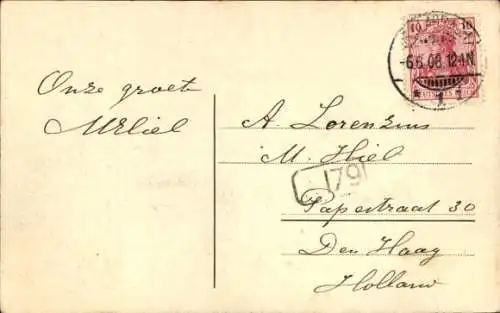 Onze groet
A. Lorenzius
M. Hiel
Papestraat 30
Den Haag
Holland
10 10
-6.6.08.12-1N.
* 1 *
79